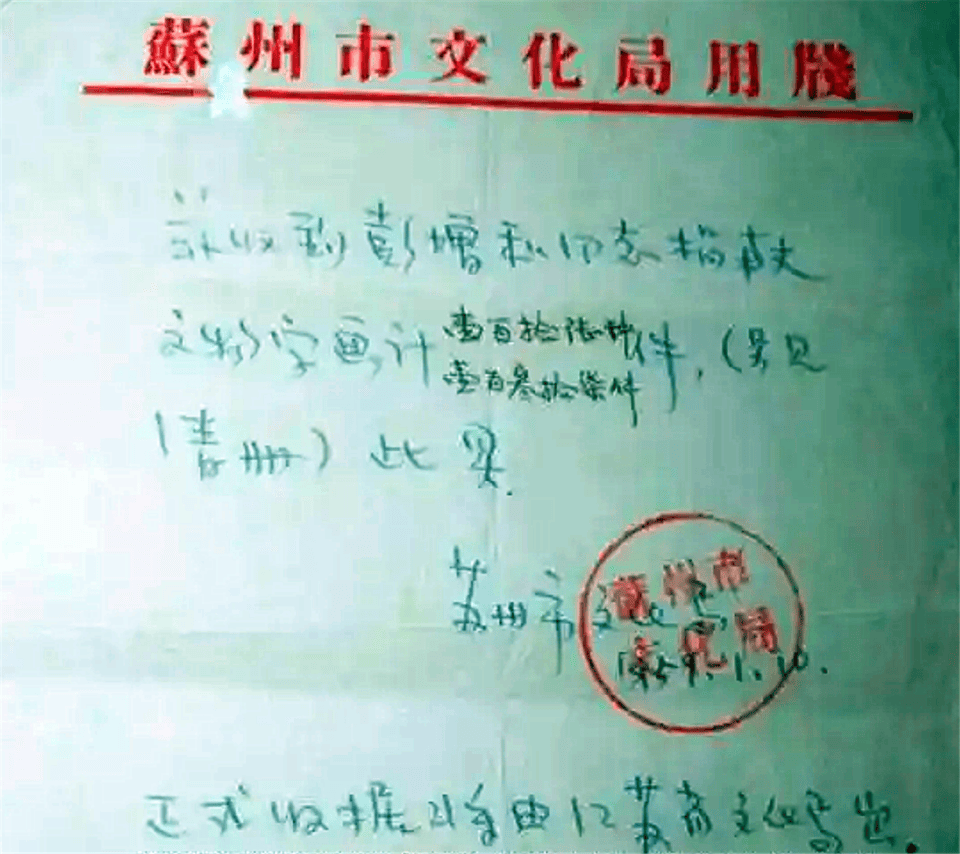 蘇州市文化局用牋
兹收到彭增和同志捐献
文物字画计壹百拾 件,(另见
壹百叁拾柒件
清册)此
苏州市文化局
1959.1.10.
蘇州市
文化局
正式收据将由江苏省文化局出.